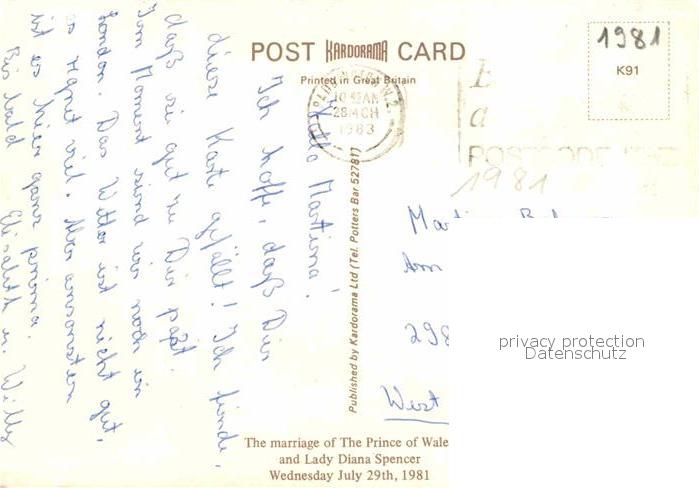 POST KARDORAMA CARD
Printed in Great Britain
1981
K91
PADDINGTON W.2.
10 AM
28 MCH
1983
POSTCODE
1981
Hallo Martina!
Ich hoffe, daß Dir
diese Karte gefällt! Ich finde,
daß sie gut zu Dir paßt.
Im Moment sind wir noch in
London. Das Wetter ist nicht gut,
es regnet viel. Aber ansonsten
ist es hier ganz prima.
Bis bald Elisabeth u. Willy
Published by Kardorama Ltd (Tel. Potters Bar 52781)
Am
298
West
privacy protection
Datenschutz
The marriage of The Prince of Wale
and Lady Diana Spencer
Wednesday July 29th, 1981